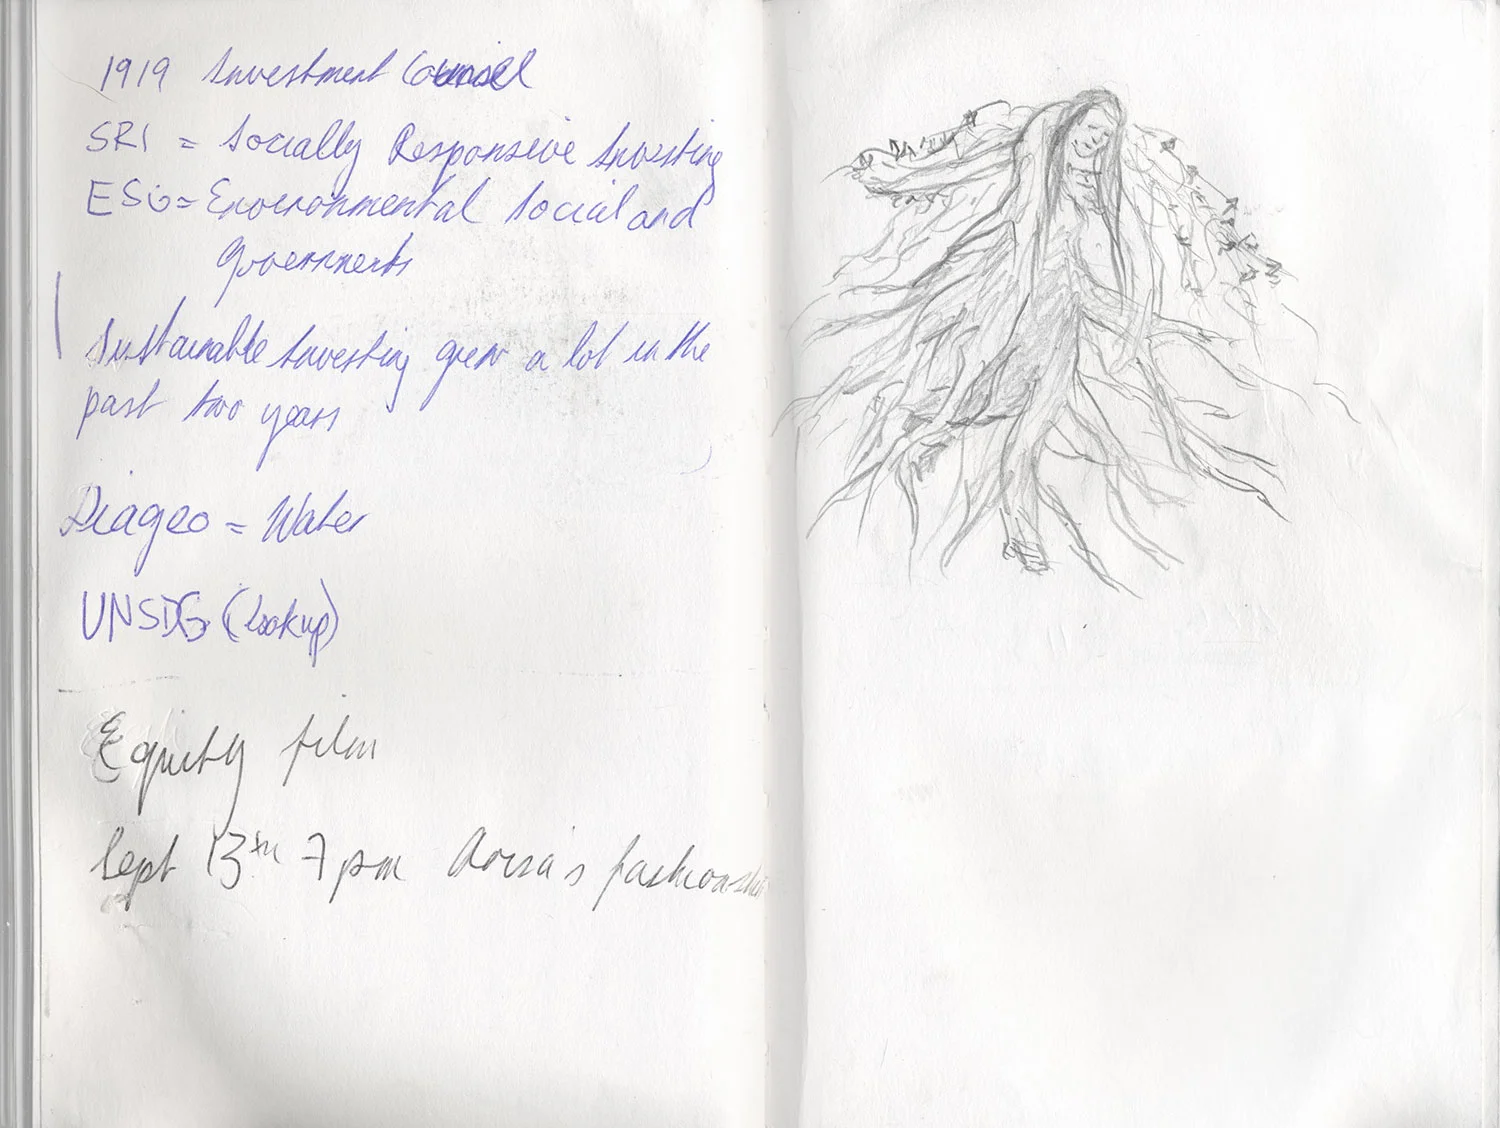 1919 Investment Counsel
SRI = Socially Responsive Investing
ESG = Environmental Social and
Governments
Sustainable Investing grew a lot in the
past two years
Diageo = Water
UNSDG (Lookup)
Equity film
Sept 13th 7pm fashion